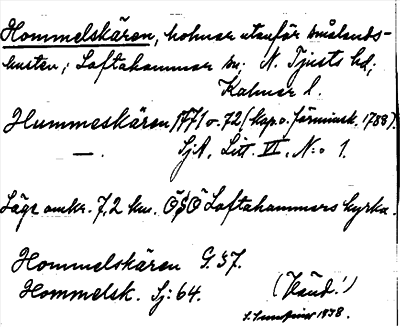 Hommelskären, holmar utanför smålands-
kusten, Loftahammar sn, N. Tjusts hd,
Kalmar l.
Hummeskären 1771 o. 72 (kap. o. 1788).
—. SjA, Litt. VI, N:o 1.
Läge omkr. 7,2 km. ÖSÖ Loftahammars kyrka.
Hommelskären G. 37.
Hommelsk. Sj: 64.
(Känd!)
1938.